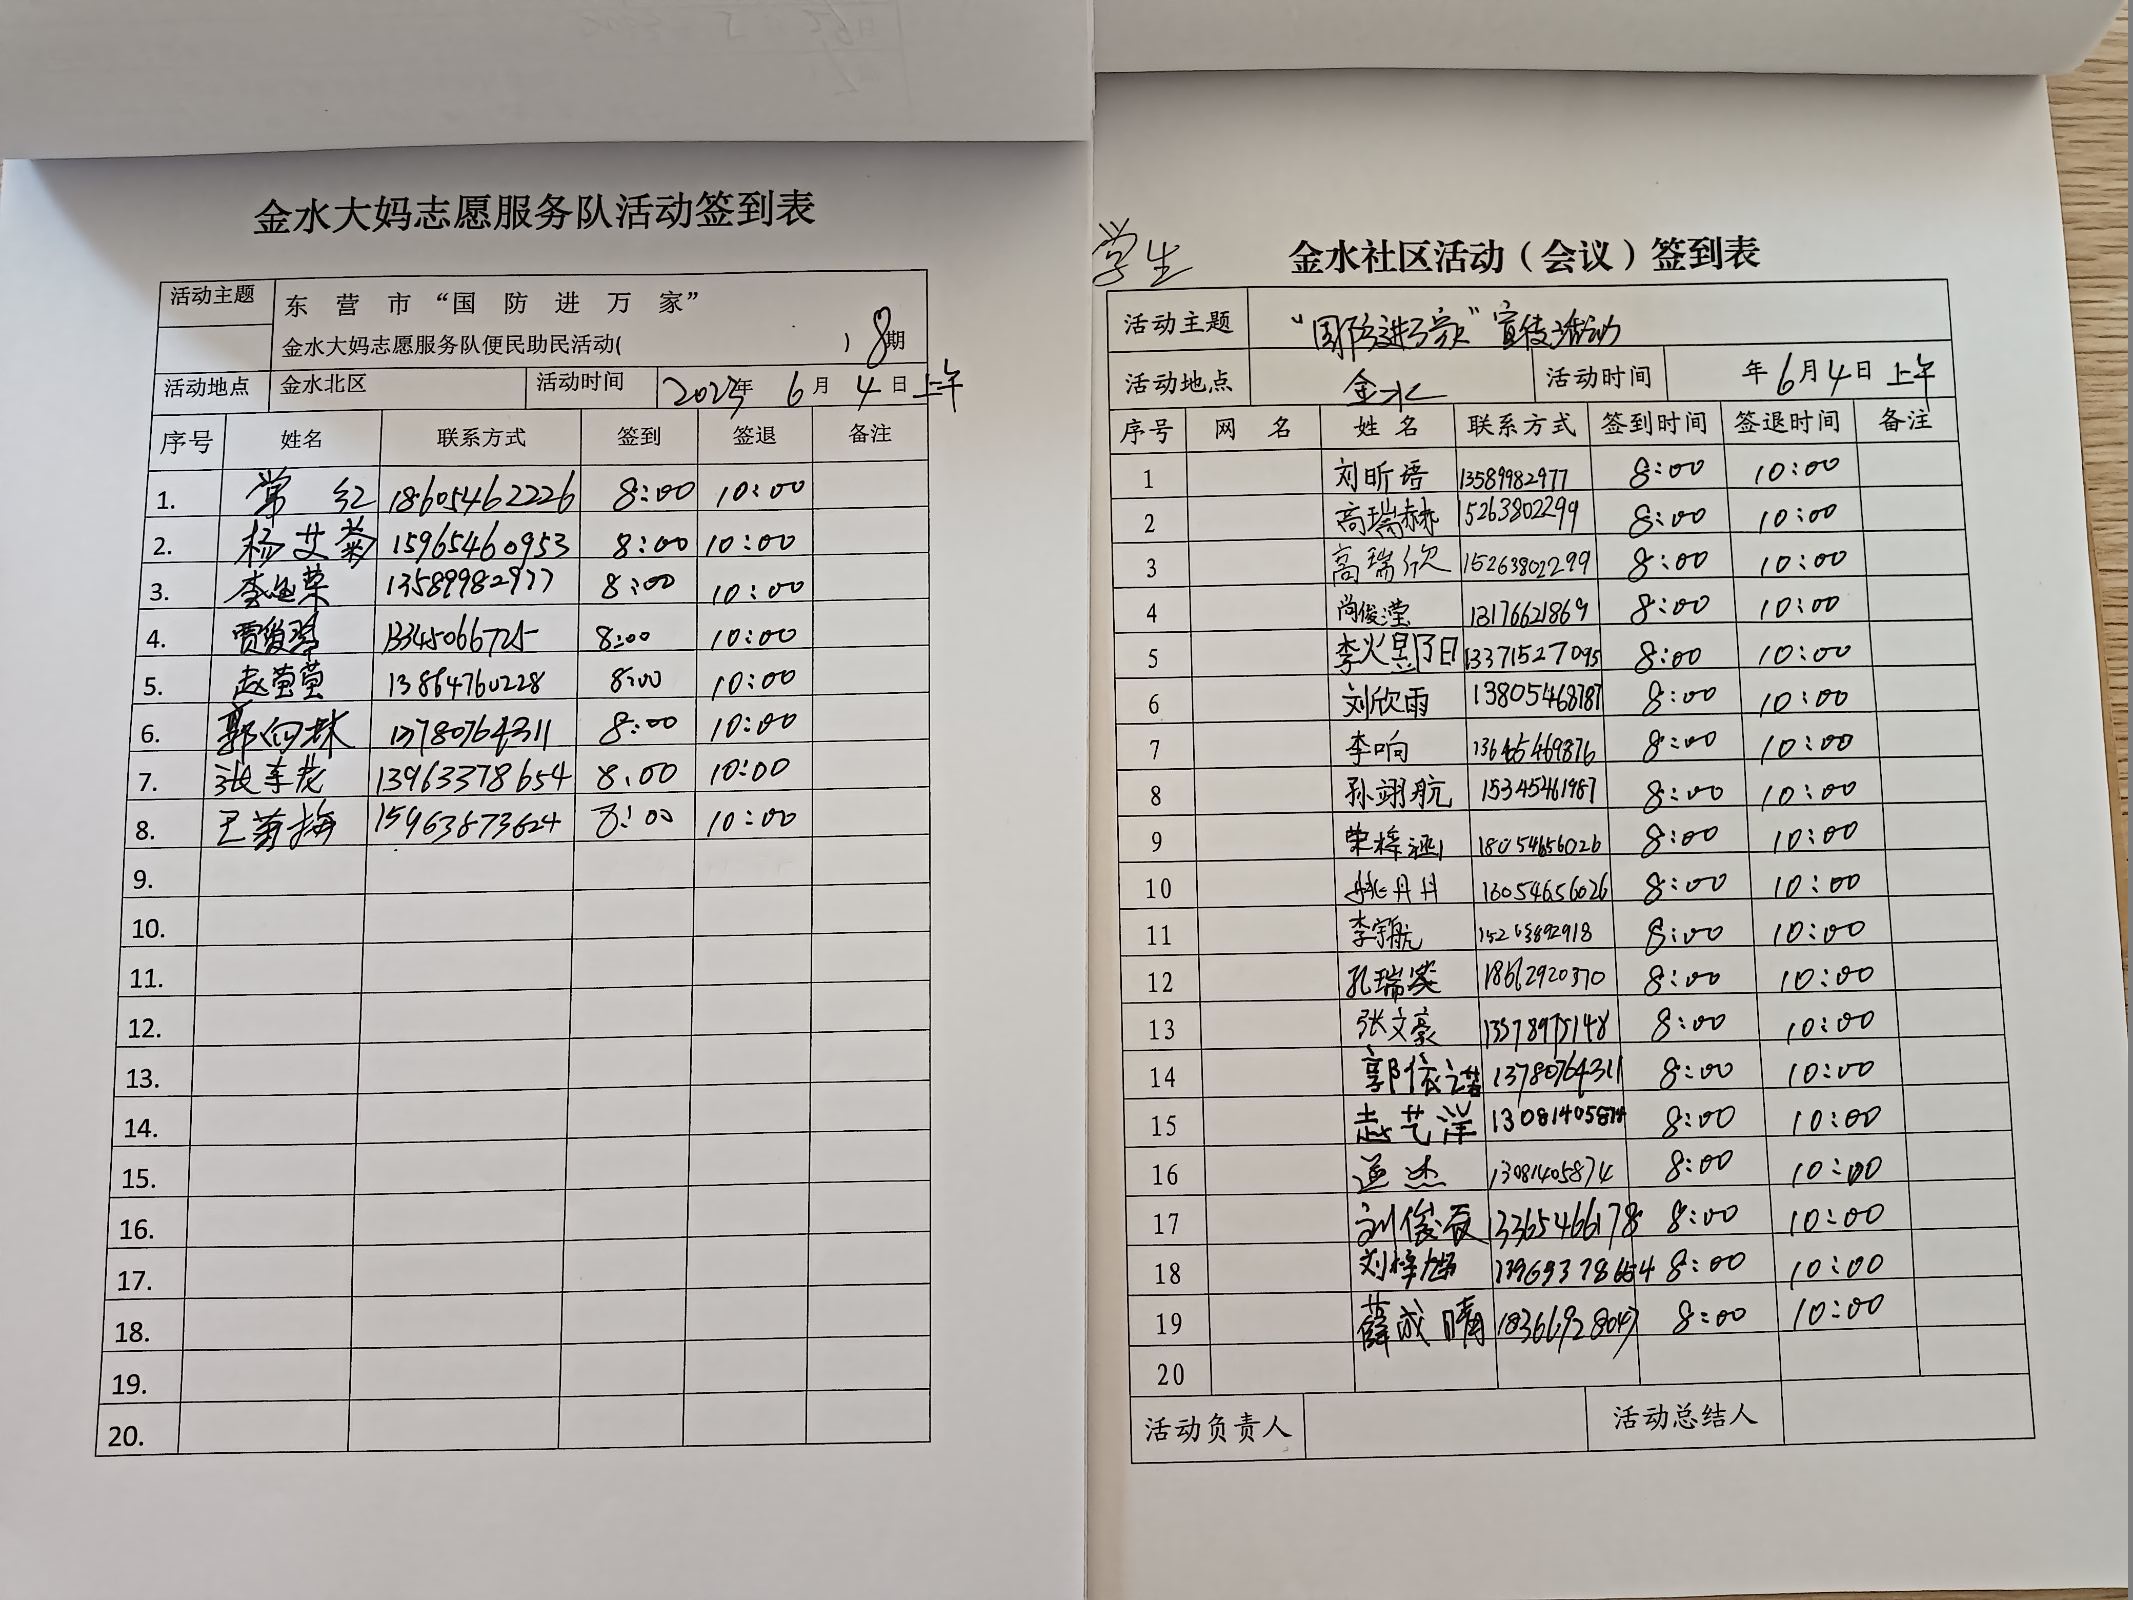 金水大妈志愿服务队活动签到表
活动主题 东营市“国防进万家”
金水大妈志愿服务队便民助民活动( ) 8期
活动地点 金水北区 活动时间 年 6月 4日 上午
序号 姓名 联系方式 签到 签退 备注
1. 常红 18605462226 8:00 10:00
2. 杨艾菊 15965460953 8:00 10:00
3. 13589982977 8:00 10:00
4. 贾俊琴 13345066725 8:00 10:00
5. 赵萤萤 13864760228 8:00 10:00
6. 郭向林 13780764311 8:00 10:00
7. 13963378654 8:00 10:00
8. 王菊梅 15963873624 8:00 10:00
9.
10.
11.
12.
13.
14.
15.
16.
17.
18.
19.
20.
学生
金水社区活动（会议）签到表
活动主题 “国防进万家”宣传活动
活动地点 金水 活动时间 年6月4日 上午
序号 网名 姓名 联系方式 签到时间 签退时间 备注
1 刘昕语 13589982977 8:00 10:00
2 高瑞赫 15263802299 8:00 10:00
3 高瑞欣 15263802299 8:00 10:00
4 尚俊滢 13176621869 8:00 10:00
5 13371527095 8:00 10:00
6 刘欣雨 13805468787 8:00 10:00
7 李响 13645469876 8:00 10:00
8 孙翊航 15345461987 8:00 10:00
9 荣梓涵 18054656026 8:00 10:00
10 姚丹丹 18054656026 8:00 10:00
11 李宇航 8:00 10:00
12 8:00 10:00
13 张文豪 8:00 10:00
14 郭依诺 13780764311 8:00 10:00
15 艺洋 13081405874 8:00 10:00
16 13081405874 8:00 10:00
17 刘俊辰 13365466178 8:00 10:00
18 8:00 10:00
19 薛成晴 8:00 10:00
20
活动负责人 活动总结人